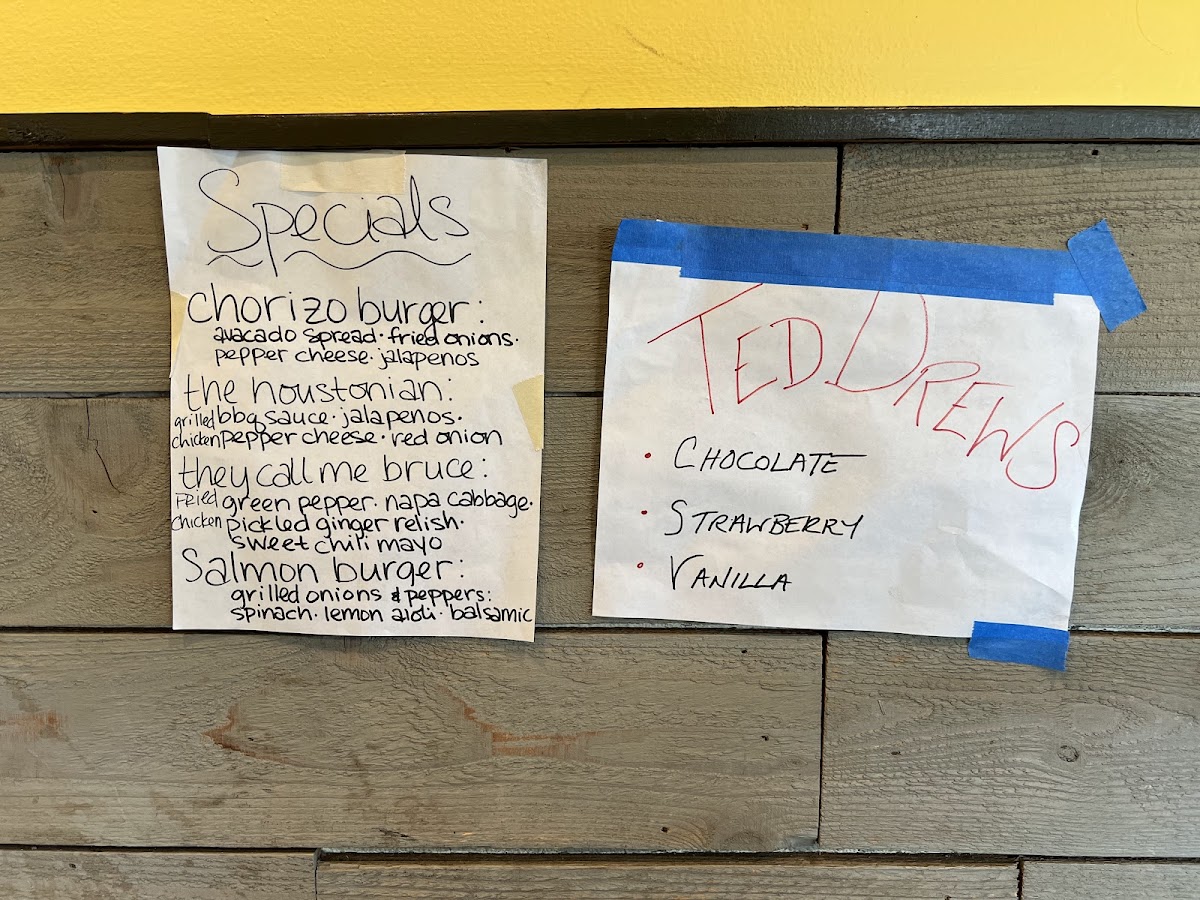 Specials
chorizo burger:
avacado spread · fried onions ·
pepper cheese · jalapenos
the houstonian:
grilled bbq sauce · jalapenos ·
chicken pepper cheese · red onion
they call me bruce:
Fried green pepper · napa cabbage ·
chicken pickled ginger relish ·
sweet chili mayo
Salmon burger:
grilled onions & peppers:
spinach · lemon aioli · balsamic
TED DREWS
• CHOCOLATE
• STRAWBERRY
• VANILLA